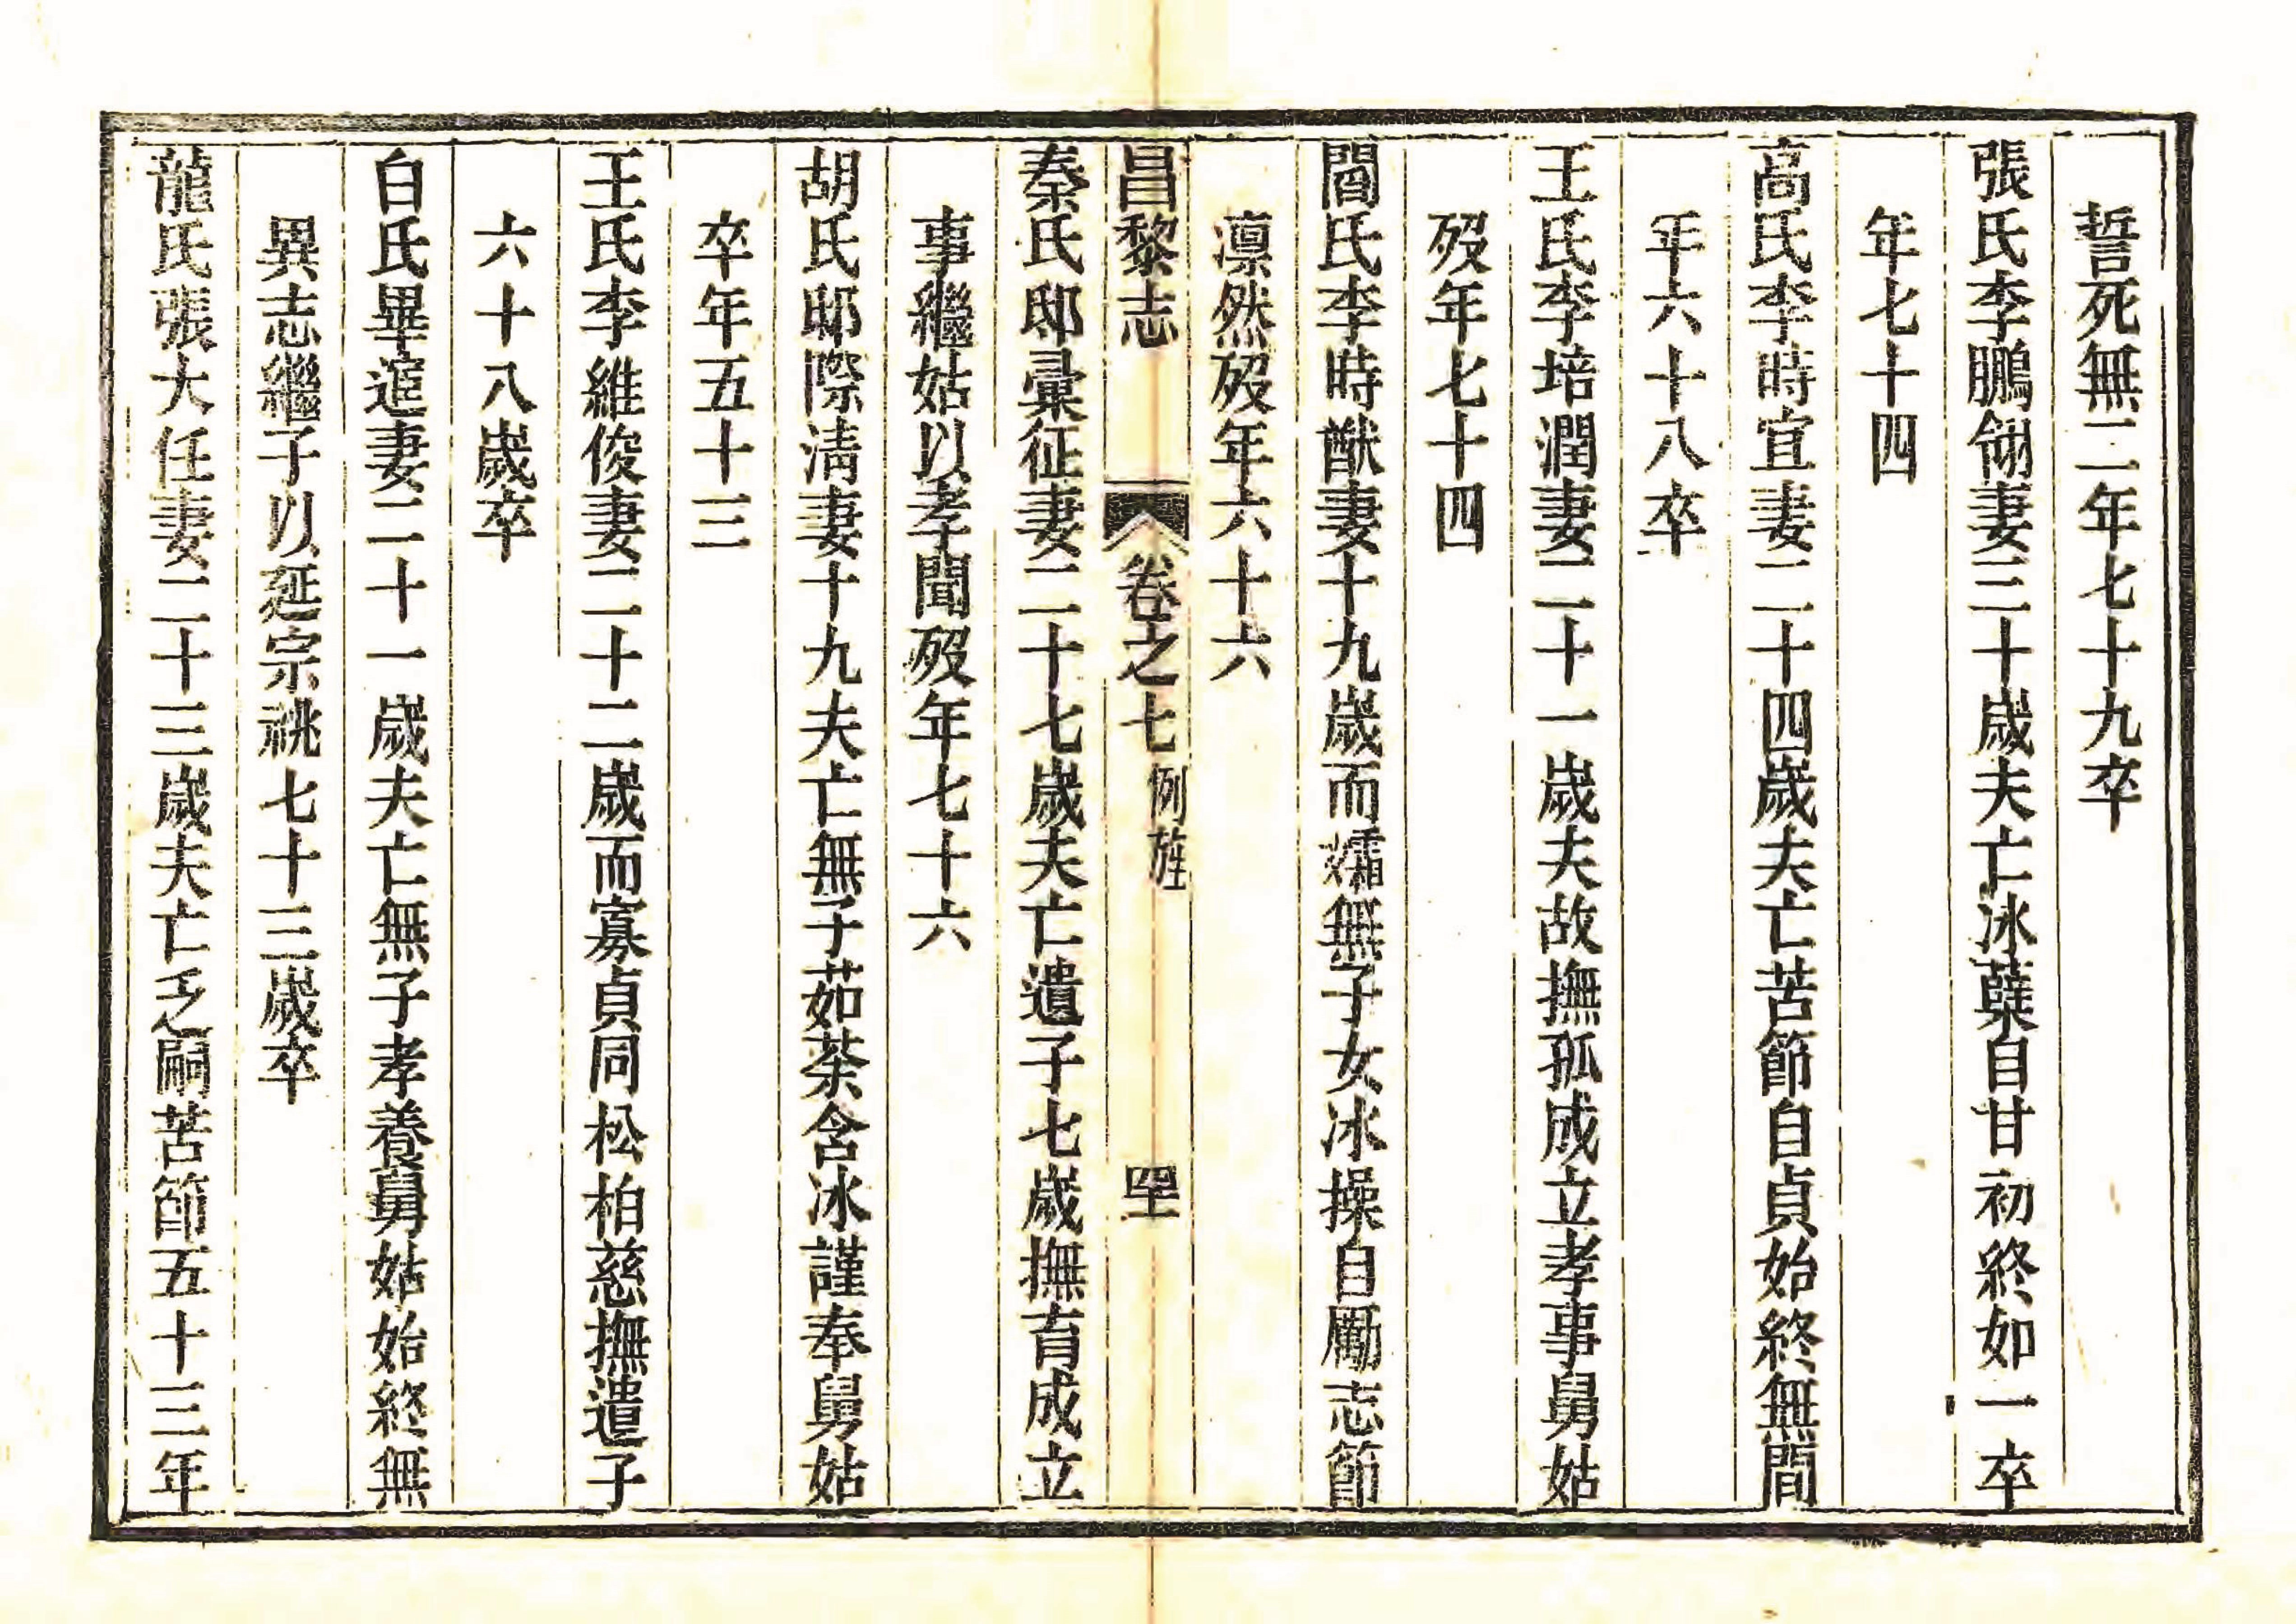 誓死無二年七十九卒
張氏李鵬翎妻三十歲夫亡冰蘖自甘初終如一卒
年七十四
高氏李時宜妻二十四歲夫亡苦節自貞始終無間
年六十八卒
王氏李培潤妻二十一歲夫故撫孤成立孝事舅姑
歿年七十四
閻氏李時猷妻十九歲而孀無子女冰操自勵志節
凛然歿年六十六
昌黎志 卷之七 例旌
秦氏邸彙征妻二十七歲夫亡遺子七歲撫育成立
事繼姑以孝聞歿年七十六
胡氏邸際清妻十九夫亡無子茹荼含冰謹奉舅姑
卒年五十三
王氏李維俊妻二十二歲而寡貞同松柏慈撫遺子
六十八歲卒
白氏畢妻二十一歲夫亡無子孝養舅姑始終無
異志繼子以延宗祧七十三歲卒
龍氏張大任妻二十三歲夫亡乏嗣苦節五十三年